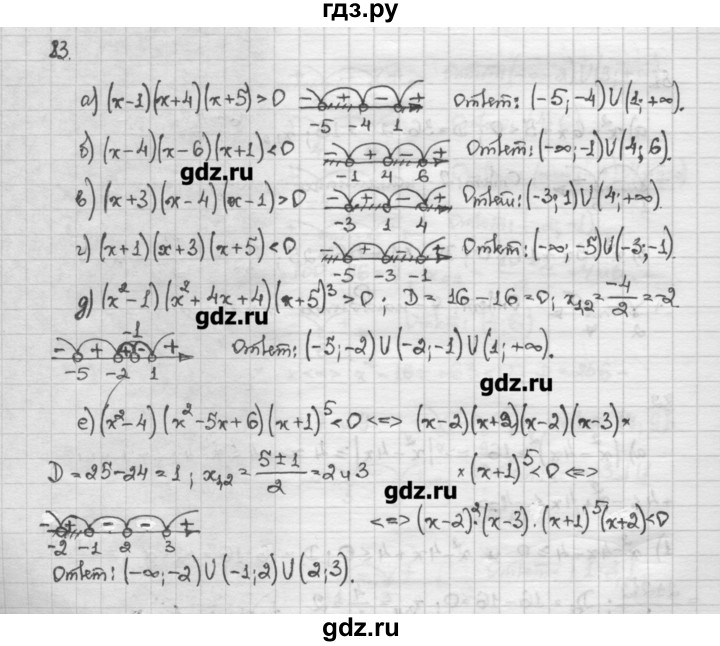 гдз.ру
83.
а) (x-1)(x+4)(x+5)>0 - + - + -5 -4 1 Ответ: (-5;-4)∪(1;+∞).
б) (x-4)(x-6)(x+1)<0 - + - + -1 4 6 Ответ: (-∞;-1)∪(4;6).
gdz.ru
в) (x+3)(x-4)(x-1)>0 - + - + -3 1 4 Ответ: (-3;1)∪(4;+∞).
г) (x+1)(x+3)(x+5)<0 - + - + -5 -3 -1 Ответ: (-∞;-5)∪(-3;-1).
д) (x²-1)(x²+4x+4)(x+5)³>0; D=16-16=0; x₁,₂=-4/2=-2
gdz.ru
- + + - + -5 -2 -1 1 Ответ: (-5;-2)∪(-2;-1)∪(1;+∞).
gdz.ru
е) (x²-4)(x²-5x+6)(x+1)⁵<0 <=> (x-2)(x+2)(x-2)(x-3)×
D=25-24=1; x₁,₂=(5±1)/2=2 и 3 ×(x+1)⁵<0 <=>
gdz.ru
- + - - + -2 -1 2 3 <=> (x-2)²·(x-3)·(x+1)⁵(x+2)<0
Ответ: (-∞;-2)∪(-1;2)∪(2;3).
gdz.ru